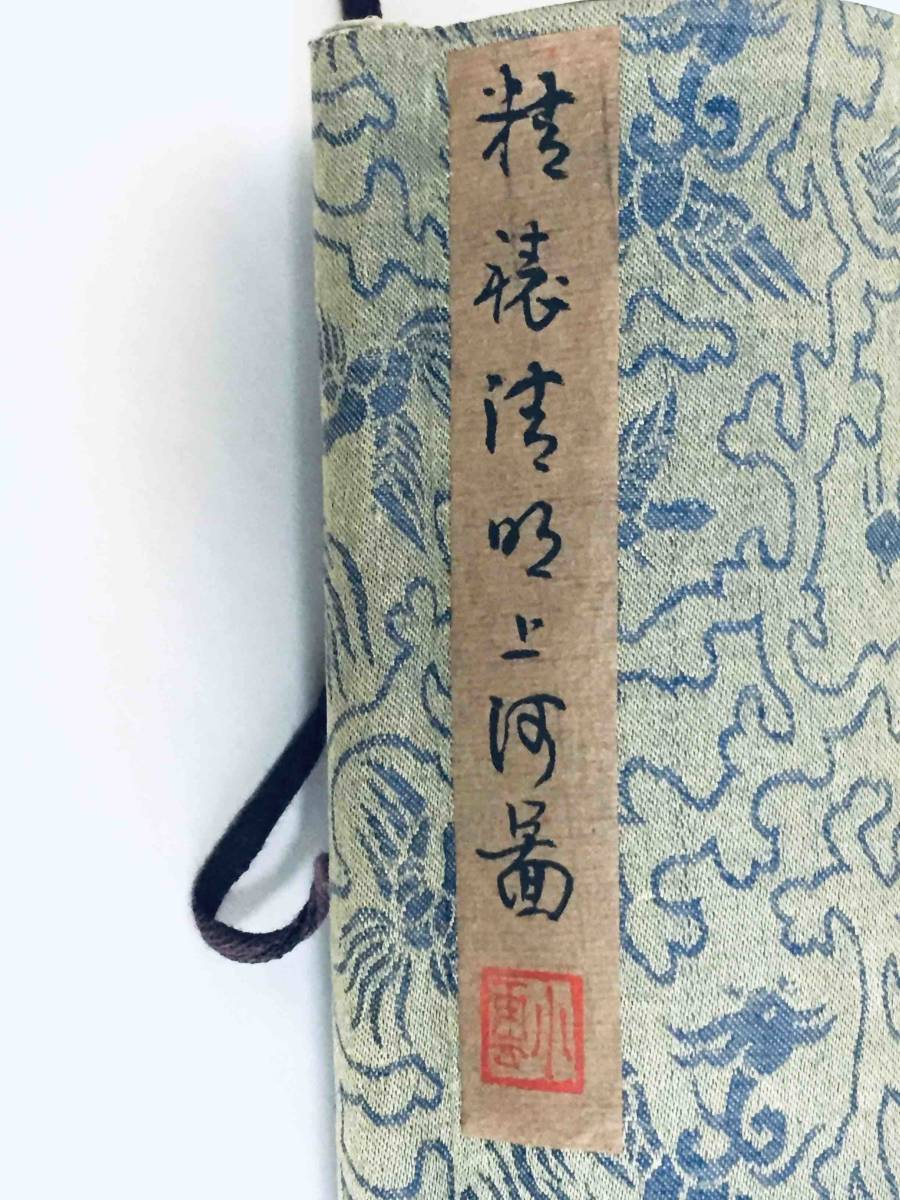 精裱清明上河圖